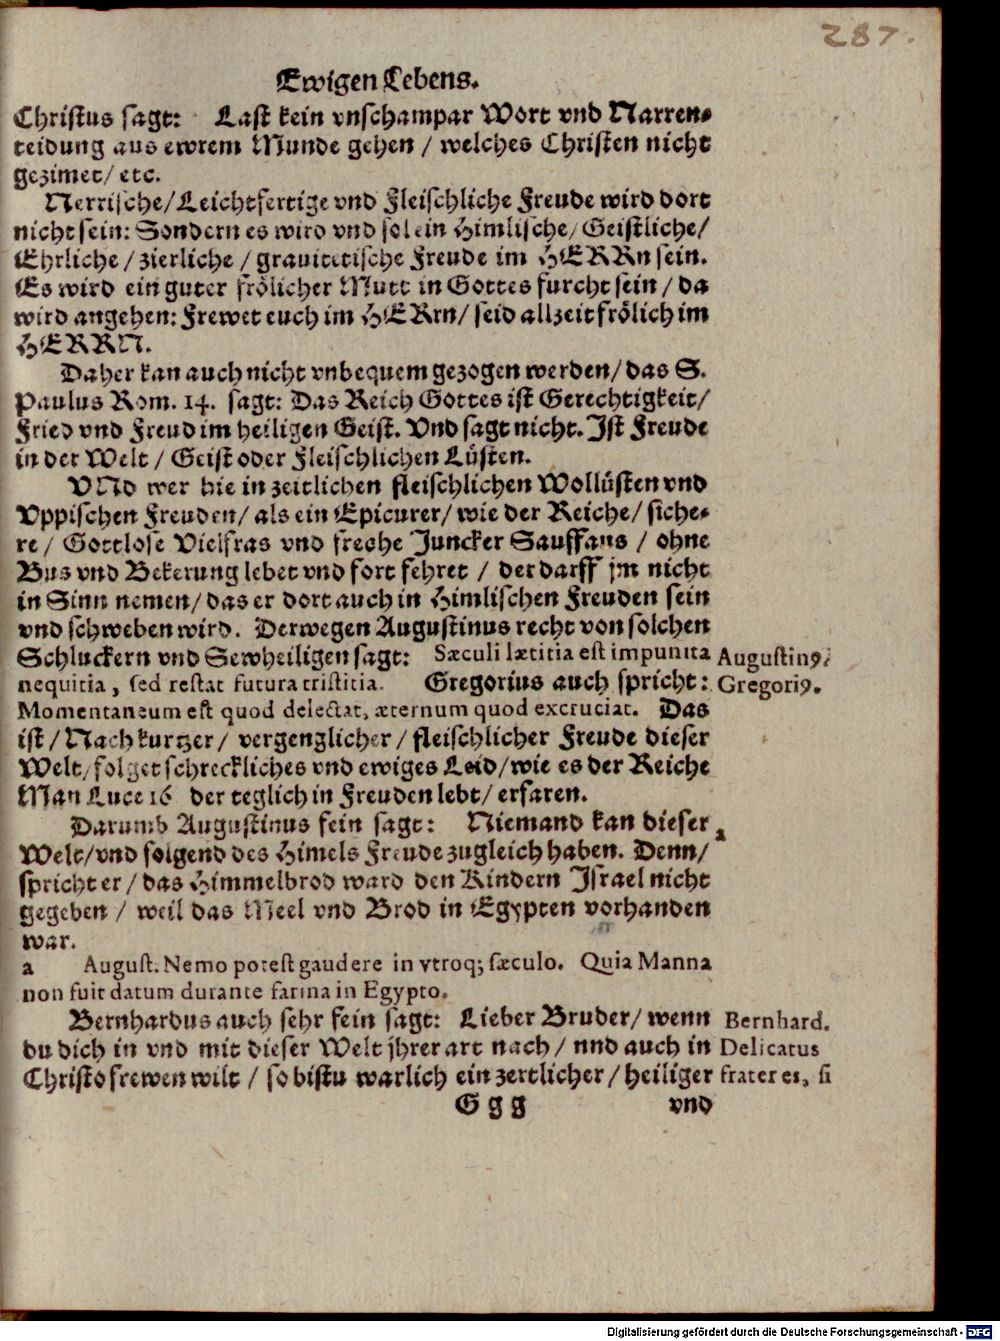 287.
Ewigen Lebens.
Christus sagt: Last kein vnschampar Wort vnd Narren-
teidung aus ewrem Munde gehen / welches Christen nicht
gezimet/ etc.
Nerrische/ Leichtfertige vnd Fleischliche Freude wird dort
nicht sein: Sondern es wird vnd sol ein Himlische/ Geistliche/
Ehrliche / zierliche / grauitetische Freude im HERRn sein.
Es wird ein guter frölicher Mutt in Gottes furcht sein / da
wird angehen: Frewet euch im HERrn/ seid allzeit frölich im
HERRN.
Daher kan auch nicht vnbequem gezogen werden/ das S.
Paulus Rom. 14. sagt: Das Reich Gottes ist Gerechtigkeit/
Fried vnd Freud im heiligen Geist. Vnd sagt nicht. Ist Freude
in der Welt / Geist oder Fleischlichen Lüsten.
VNd wer hie in zeitlichen fleischlichen Wollüsten vnd
Vppischen Freuden/ als ein Epicurer/ wie der Reiche/ siche-
re/ Gottlose Vielfras vnd freche Juncker Sauffaus / ohne
Bus vnd Bekerung lebet vnd fort fehret / der darff jm nicht
in Sinn nemen/ das er dort auch in Himlischen Freuden sein
vnd schweben wird. Derwegen Augustinus recht von solchen
Schluckern vnd Sewheiligen sagt: Sæculi lætitia est impunita
Augustin9,
nequitia, sed restat futura tristitia. Gregorius auch spricht:
Gregori9.
Momentaneum est quod delectat, æternum quod excruciat. Das
ist/ Nach kurtzer/ vergenglicher/ fleischlicher Freude dieser
Welt/ folget schreckliches vnd ewiges Leid/ wie es der Reiche
Man Luce 16 der teglich in Freuden lebt/ erfaren.
Darumb Augustinus fein sagt: Niemand kan dieser a
Welt/ vnd folgend des Himels Freude zugleich haben. Denn/
spricht er/ das Himmelbrod ward den Kindern Israel nicht
gegeben / weil das Meel vnd Brod in Egypten vorhanden
war.
a August. Nemo potest gaudere in vtroq; sæculo. Quia Manna
non fuit datum durante farina in Egypto.
Bernhardus auch sehr fein sagt: Lieber Bruder/ wenn
Bernhard.
du dich in vnd mit dieser Welt jhrer art nach / nnd auch in
Delicatus
Christo frewen wilt / so bistu warlich ein zertlicher/ heiliger
frater es, si
G g g vnd
Digitalisierung gefördert durch die Deutsche Forschungsgemeinschaft - DFG